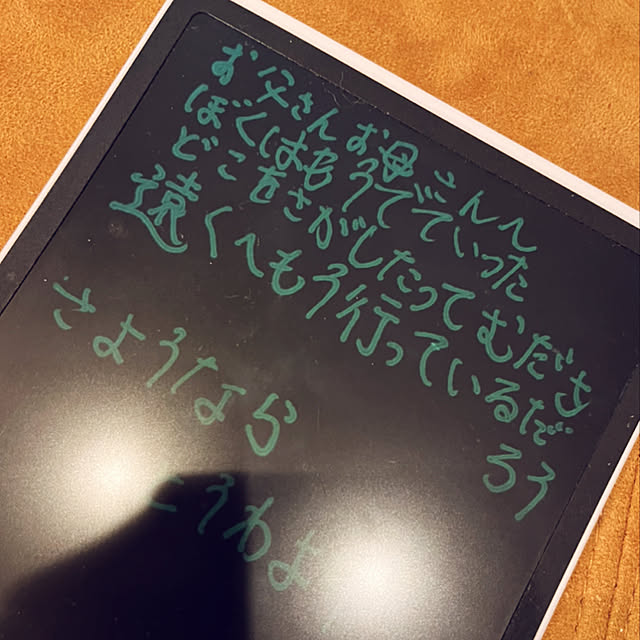 お父さんお母さんへ
ぼくはもうでていった
どこをさがしたってむだよ
遠くへもう行っているだ
ろう
さようなら